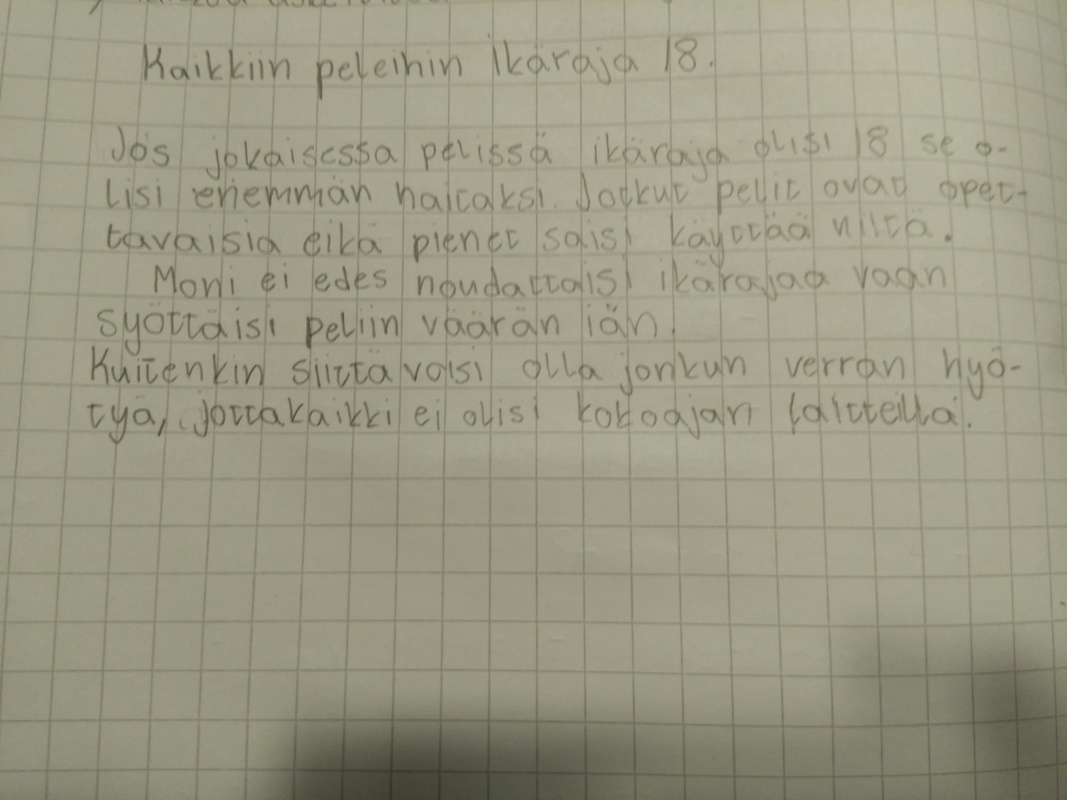 Kaikkiin peleihin ikäraja 18.
Jos jokaisessa pelissä ikäraja olisi 18 se o-
lisi enemmän haitaksi. Jotkut pelit ovat opet-
tavaisia eikä pienet saisi käyttää niitä.
Moni ei edes noudattaisi ikärajaa vaan
syöttäisi peliin väärän iän.
Kuitenkin siittä voisi olla jonkun verran hyö-
tyä, jotta kaikki ei olisi kokoajan laitteilla.